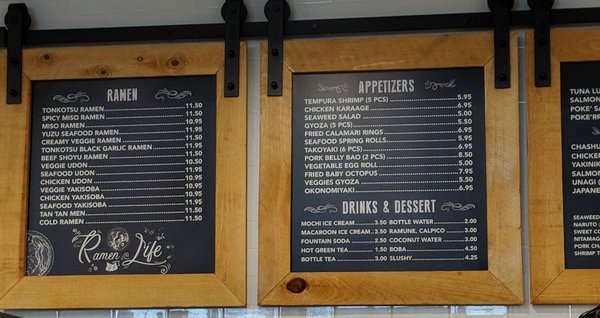 RAMEN
TONKOTSU RAMEN 11.50
SPICY MISO RAMEN 11.50
MISO RAMEN 10.95
YUZU SEAFOOD RAMEN 11.95
CREAMY VEGGIE RAMEN 11.50
TONKOTSU BLACK GARLIC RAMEN 11.95
BEEF SHOYU RAMEN 11.50
VEGGIE UDON 10.95
SEAFOOD UDON 11.95
CHICKEN UDON 10.95
VEGGIE YAKISOBA 10.95
CHICKEN YAKISOBA 10.95
SEAFOOD YAKISOBA 11.95
TAN TAN MEN 11.50
COLD RAMEN 11.50
Ramen Life
APPETIZERS
TEMPURA SHRIMP (5 PCS) 5.95
CHICKEN KARAAGE 6.95
SEAWEED SALAD 5.00
GYOZA (5 PCS) 5.50
FRIED CALAMARI RINGS 6.95
SEAFOOD SPRING ROLLS 5.95
TAKOYAKI (6 PCS) 6.95
PORK BELLY BAO (2 PCS) 8.50
VEGETABLE EGG ROLL 5.00
FRIED BABY OCTOPUS 7.95
VEGGIES GYOZA 5.50
OKONOMIYAKI 6.95
DRINKS & DESSERT
MOCHI ICE CREAM 3.50 BOTTLE WATER 2.00
MACAROON ICE CREAM 3.50 RAMUNE, CALPICO 3.00
FOUNTAIN SODA 2.50 COCONUT WATER 3.00
HOT GREEN TEA 1.50 BOBA 4.50
BOTTLE TEA 3.00 SLUSHY 4.25
TUNA
SALMON
POKE'
POKE'
CHICKEN
SALMON
UNAGI
SEAWEED
NARUTO